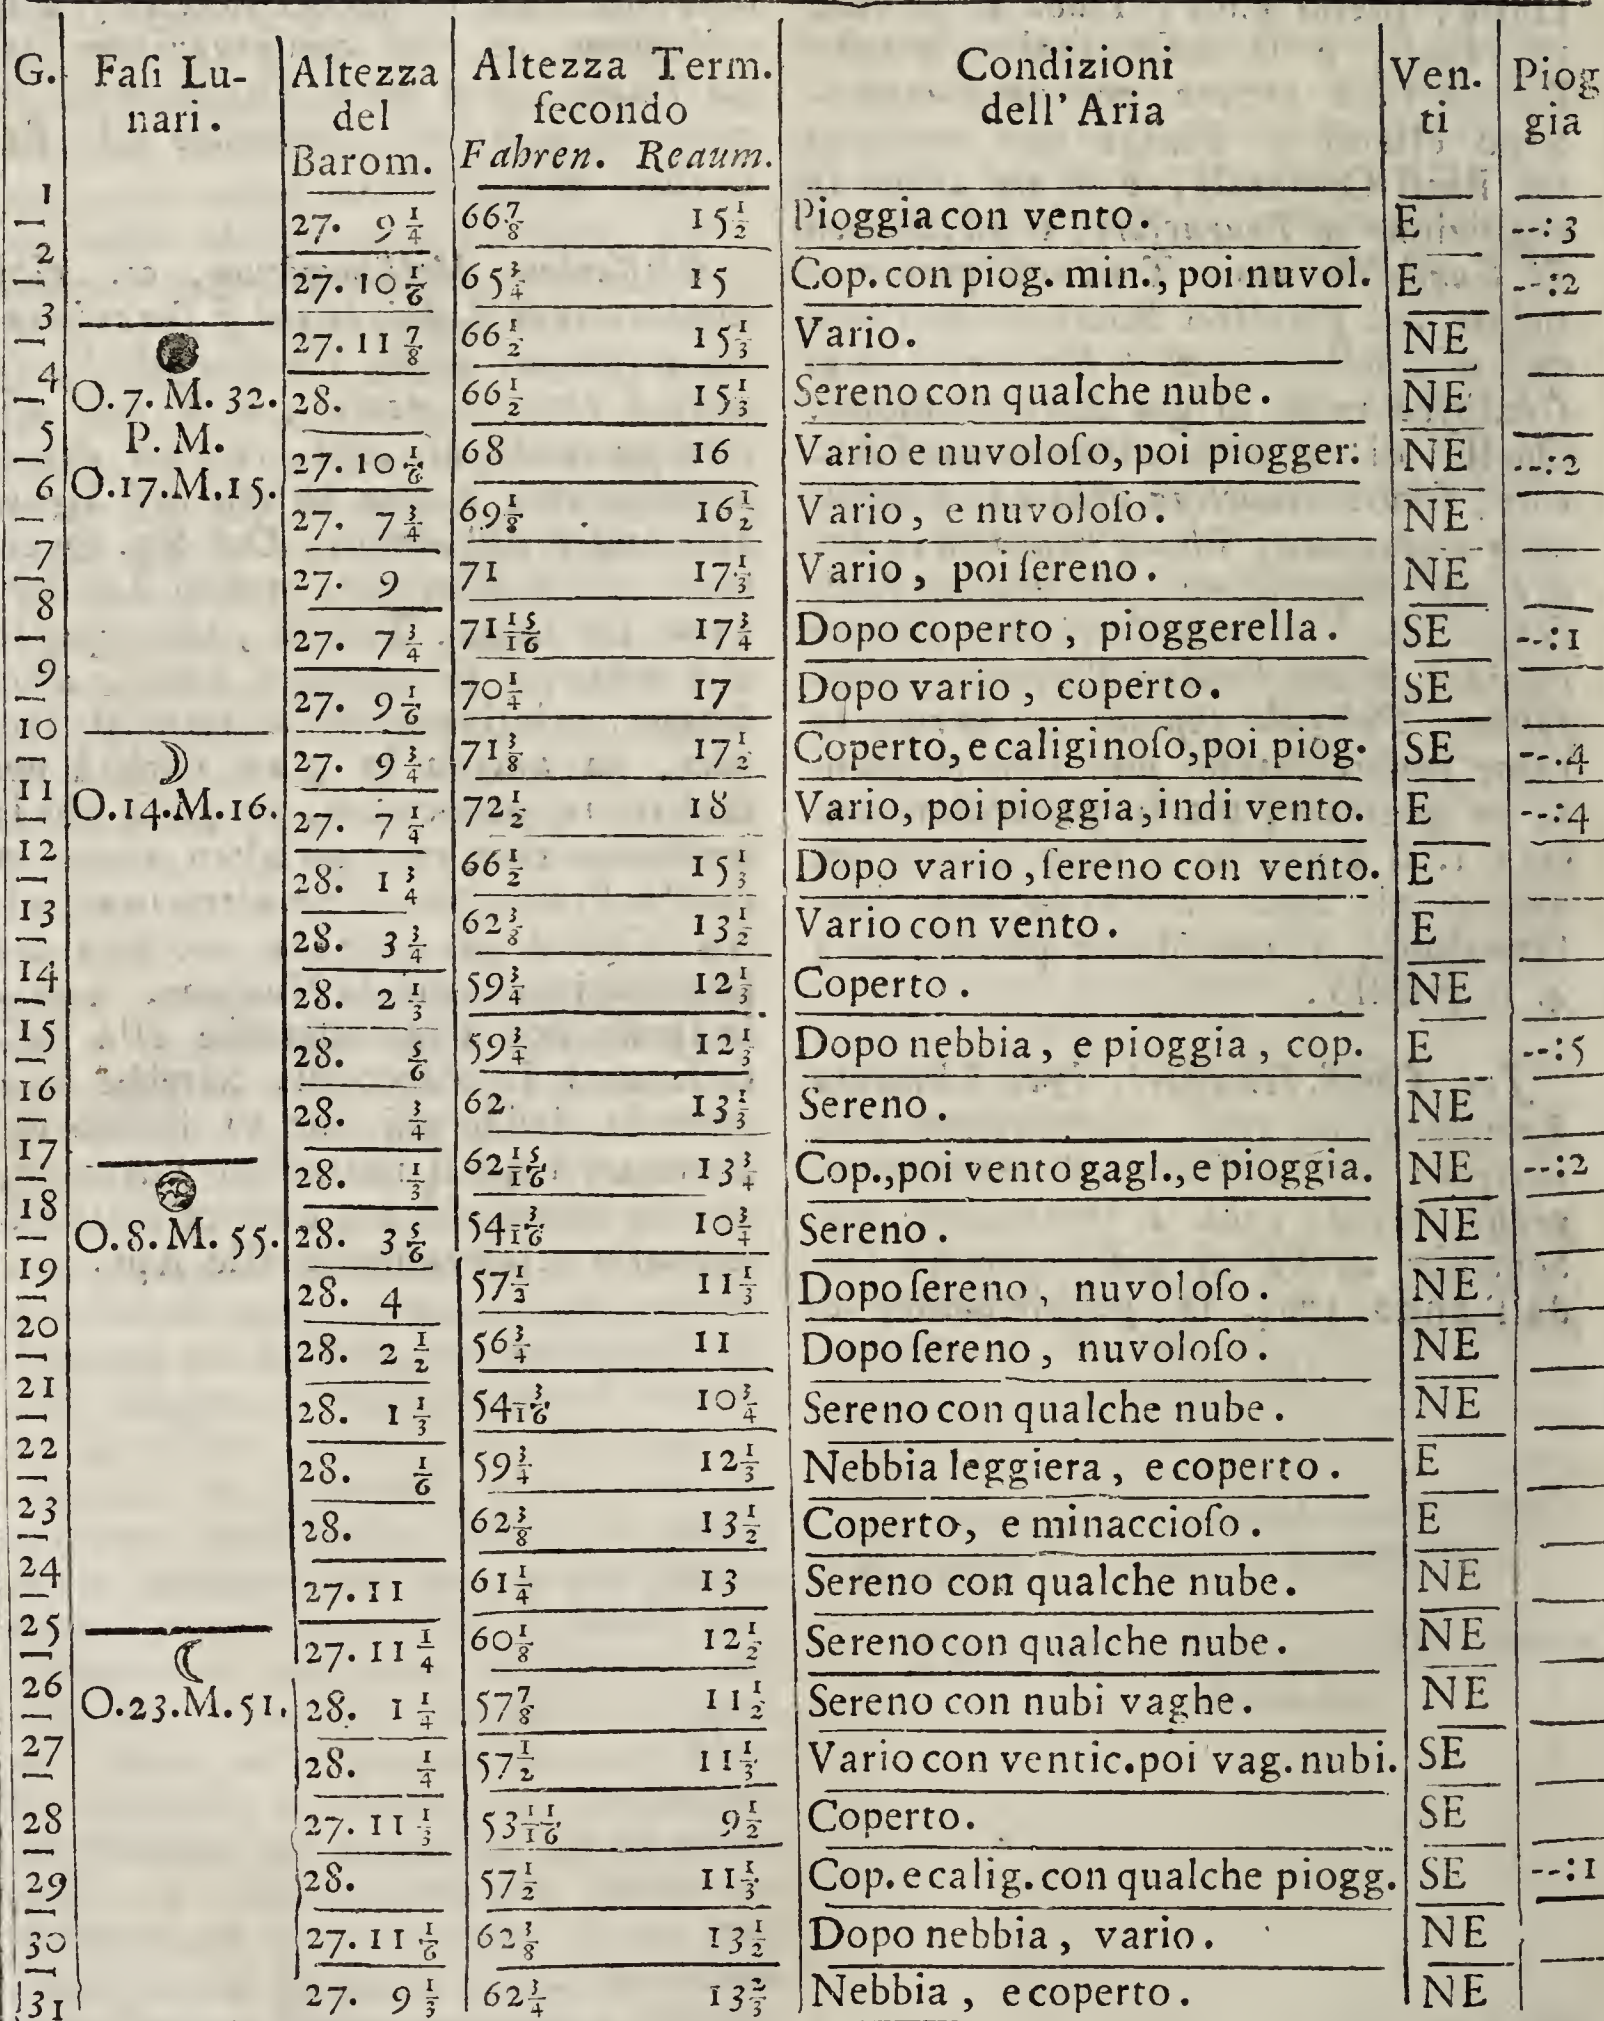 G. Faſi Lu- Altezza Altezza Term. Condizioni Ven. Piog
nari. del ſecondo dell' Aria ti gia
Barom. Fahren. Reaum.
1 27. 9 1/4 66 7/8 15 1/2 Pioggia con vento. E --:3
2 27. 10 1/6 65 3/4 15 Cop. con piog. min., poi nuvol. E --:2
3 27. 11 7/8 66 1/2 15 1/3 Vario. NE
4 O. 7. M. 32. 28. 66 1/2 15 1/3 Sereno con qualche nube. NE
5 P. M. 27. 10 1/6 68 16 Vario e nuvoloſo, poi piogger. NE --:2
6 O.17.M.15. 27. 7 3/4 69 1/8 16 1/2 Vario, e nuvoloſo. NE
7 27. 9 71 17 1/3 Vario, poi ſereno. NE
8 27. 7 3/4 71 15/16 17 3/4 Dopo coperto, pioggerella. SE --:1
9 27. 9 1/6 70 1/4 17 Dopo vario, coperto. SE
10 27. 9 3/4 71 3/8 17 1/2 Coperto, e caliginoſo, poi piog. SE --.4
11 O.14.M.16. 27. 7 1/4 72 1/2 18 Vario, poi pioggia, indi vento. E --:4
12 28. 1 3/4 66 1/2 15 1/3 Dopo vario, ſereno con vento. E
13 28. 3 3/4 62 3/8 13 1/2 Vario con vento. E
14 28. 2 1/3 59 3/4 12 1/3 Coperto. NE
15 28. 5/6 59 3/4 12 1/3 Dopo nebbia, e pioggia, cop. E --:5
16 28. 3/4 62 13 1/3 Sereno. NE
17 28. 1/3 62 15/16 13 3/4 Cop., poi vento gagl., e pioggia. NE --:2
18 O. 8. M. 55. 28. 3 5/6 54 3/16 10 3/4 Sereno. NE
19 28. 4 57 1/2 11 1/3 Dopo ſereno, nuvoloſo. NE
20 28. 2 1/2 56 3/4 11 Dopo ſereno, nuvoloſo. NE
21 28. 1 1/3 54 3/16 10 3/4 Sereno con qualche nube. NE
22 28. 1/6 59 3/4 12 1/3 Nebbia leggiera, e coperto. E
23 28. 62 3/8 13 1/2 Coperto, e minaccioſo. E
24 27. 11 61 1/4 13 Sereno con qualche nube. NE
25 27. 11 1/4 60 1/8 12 1/2 Sereno con qualche nube. NE
26 O.23.M.51. 28. 1 1/4 57 7/8 11 1/2 Sereno con nubi vaghe. NE
27 28. 1/4 57 1/2 11 1/3 Vario con ventic. poi vag. nubi. SE
28 27. 11 1/3 53 11/16 9 1/2 Coperto. SE
29 28. 57 1/2 11 1/3 Cop. e calig. con qualche piogg. SE --:1
30 27. 11 1/6 62 3/8 13 1/2 Dopo nebbia, vario. NE
31 27. 9 1/3 62 3/4 13 2/3 Nebbia, e coperto. NE